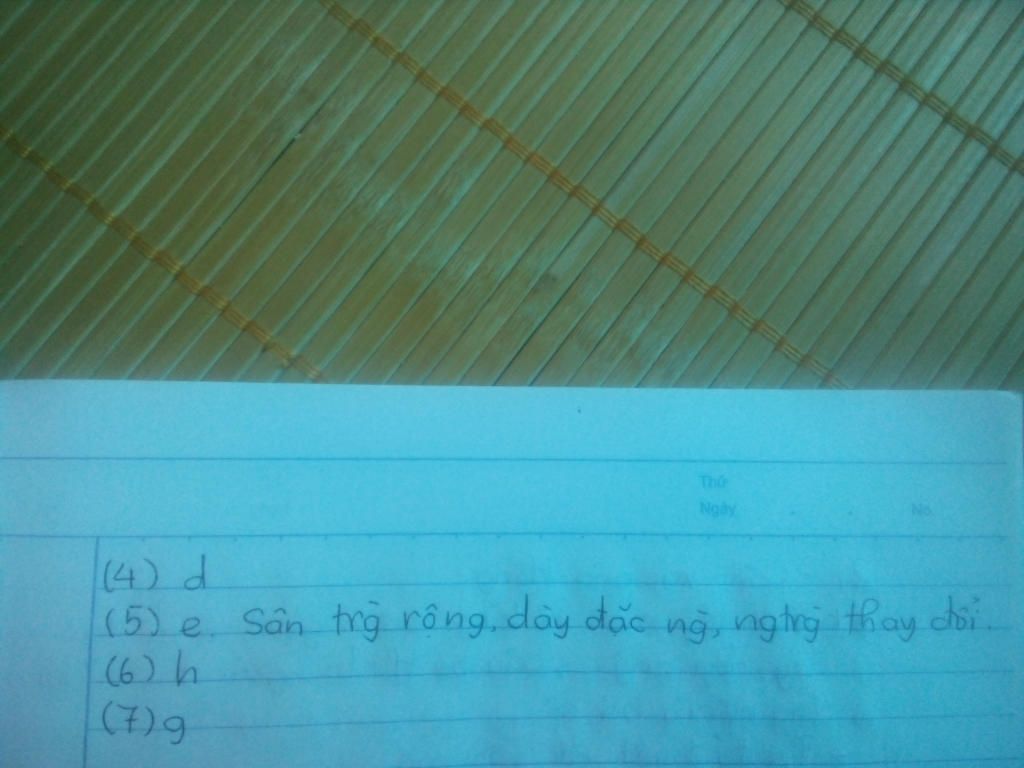 Thứ
Ngày . . No.
(4) d
(5) e. Sân trg̀ rộng, dày đặc ng̀, ngtrg̀ thay đổi.
(6) h
(7) g